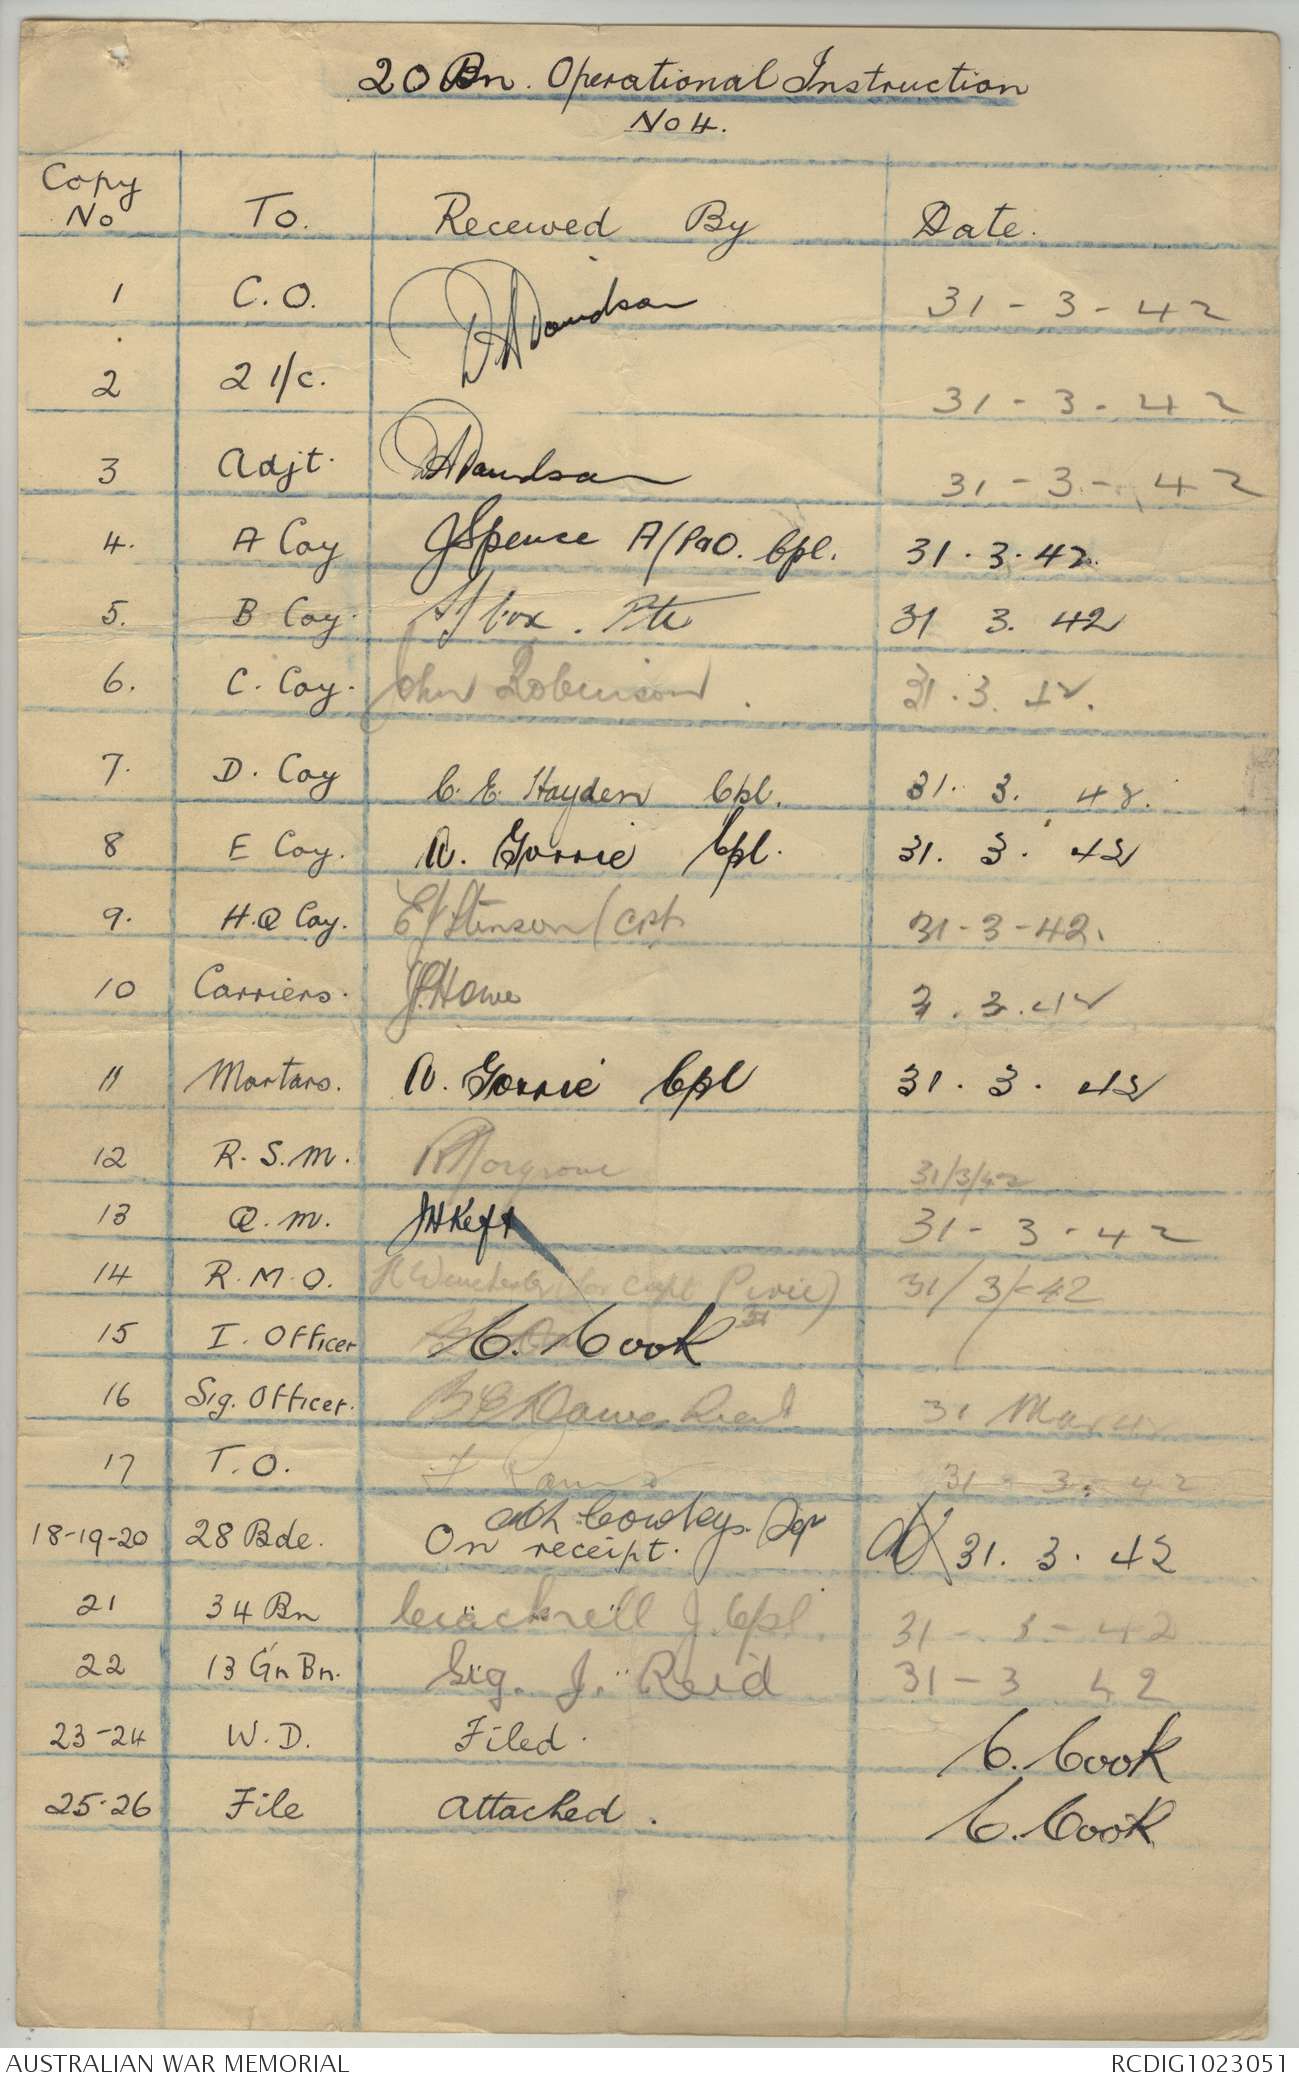 20 Bn. Operational Instruction
No 4.
Copy No To. Received By Date.
1 C.O. D A Davidson 31-3-42
2 2 I/c. 31-3-42
3 Adjt. D A Davidson 31-3-42
4. A Coy J Spence A/ Cpl. 31.3.42.
5. B Coy. Fox. Pte 31 3. 42
6. C. Coy. John Robinson. 31.3.42.
7. D. Coy C. E. Hayden Cpl. 31. 3. 42.
8 E Coy. R. Gorrie Cpl. 31. 3. 42
9. H.Q Coy. E J Stinson 31-3-42.
10 Carriers. J. Howe 3.42
11 Mortars. R. Gorrie Cpl 31. 3. 42
12 R.S.M. 31/3/42
13 Q.M. 31-3-42
14 R.M.O. Winchester (for Capt Pirie) 31/3/42
15 I. Officer C. Cook
16 Sig. Officer. Lieut 31 Mar 42
17 T.O. 31-3-42
18-19-20 28 Bde. Cowley.
On receipt. 31. 3. 42
21 34 Bn Cracknell J. Cpl. 31-3-42
22 13 Gn Bn. Sig. J. Reid 31-3 42
23-24 W.D. Filed. C. Cook
25-26 File Attached. C. Cook
AUSTRALIAN WAR MEMORIAL RCDIG1023051